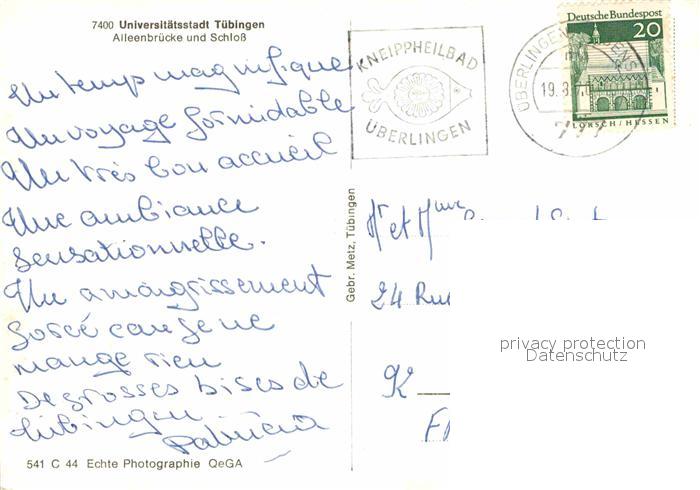 7400 Universitätsstadt Tübingen
Alleenbrücke und Schloß
Un temps magnifique
Un voyage formidable
Un très bon accueil
Une ambiance
sensationnelle.
Un amaigrissement
forcé car je ne
mange rien
De grosses bises de
Tübingen
Patricia
541 C 44 Echte Photographie QeGA
Gebr. Metz, Tübingen
KNEIPPHEILBAD
ÜBERLINGEN
ÜBERLINGEN
19.3.
Deutsche Bundespost
20
LORSCH / HESSEN
Mr et Mme
24 Rue
K
privacy protection
Datenschutz